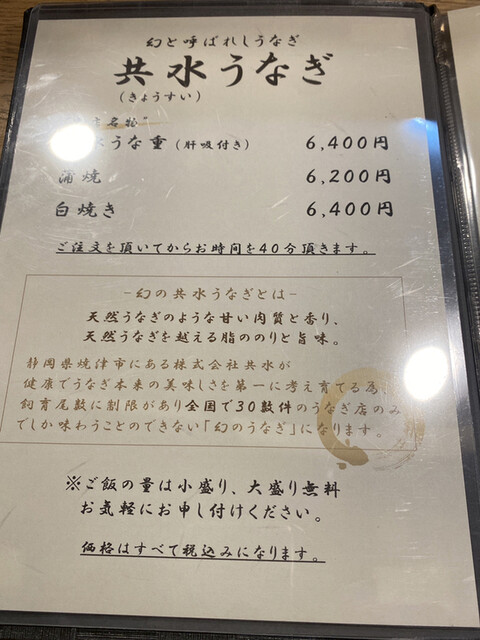 幻と呼ばれしうなぎ
共水うなぎ
(きょうすい)
名物"
うな重(肝吸付き) 6,400円
蒲焼 6,200円
白焼き 6,400円
ご注文を頂いてからお時間を40分頂きます。
-幻の共水うなぎとは-
天然うなぎのような甘い肉質と香り、
天然うなぎを越える脂ののりと旨味。
静岡県焼津市にある株式会社共水が
健康でうなぎ本来の美味しさを第一に考え育てる為、
飼育尾数に制限があり全国で30数件のうなぎ店のみ
でしか味わうことのできない「幻のうなぎ」になります。
※ご飯の量は小盛り、大盛り無料
お気軽にお申し付けください。
価格はすべて税込みになります。